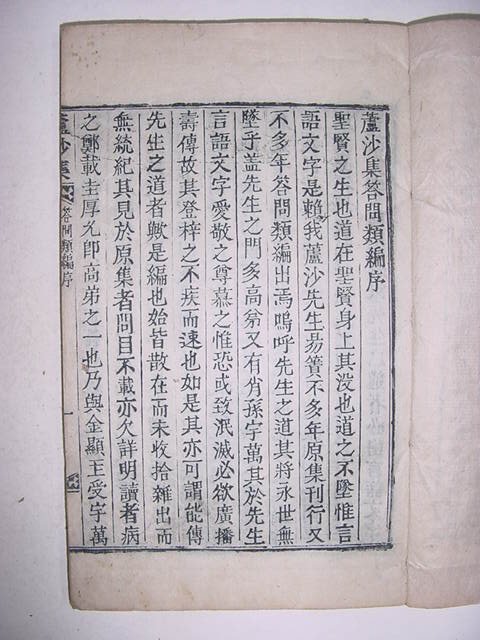 蘆沙集答問類編序
聖賢之生也道在聖賢身上其没也道之不墜惟言
語文字是賴我蘆沙先生昜簀不多年原集刊行又
不多年答問類編出焉嗚呼先生之道其將永世無
墜乎盖先生之門多高弟又有肖孫字萬其於先生
言語文字愛敬之尊慕之惟恐或致泯滅必欲廣播
壽傳故其登梓之不疾而速也如是其亦可謂能傳
先生之道者歟是編也始皆散在而未收拾雜出而
無統紀其見於原集者問目不載亦欠詳明讀者病
之鄭載圭厚允卽高弟之一也乃與金顯玉受字萬
蘆沙集 答問類編序 一